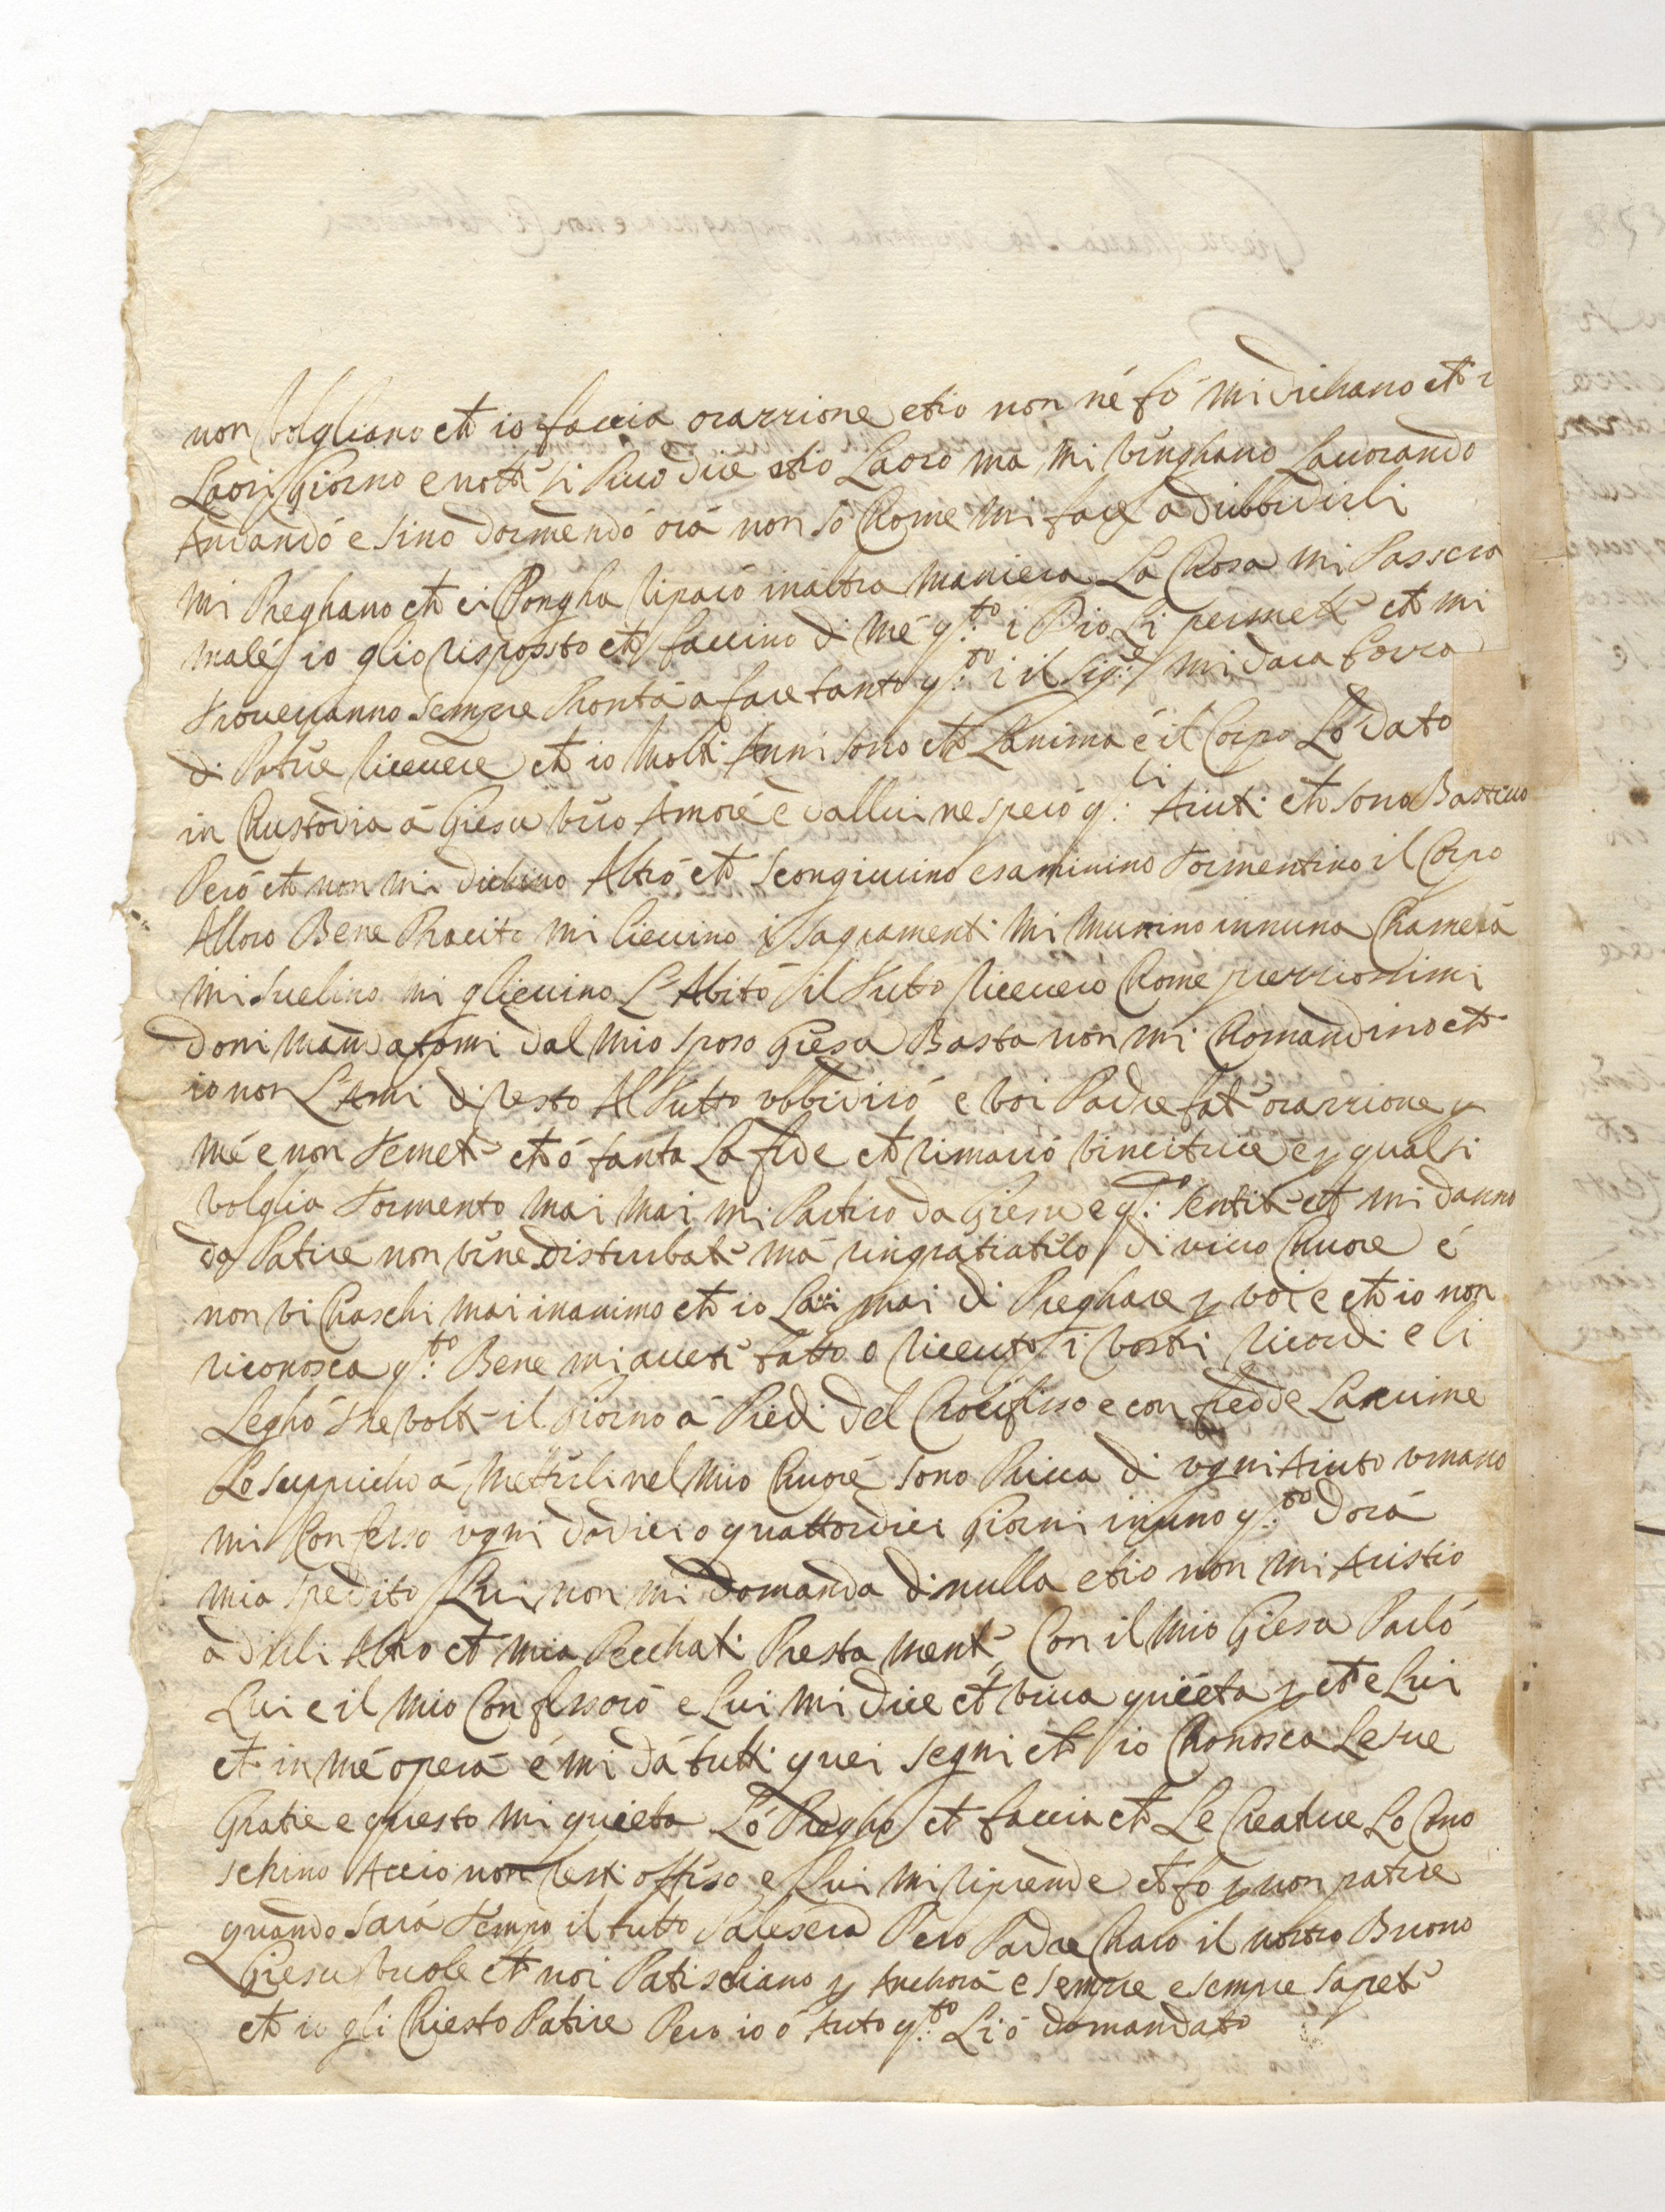 non volgliano ch io faccia orazzione etio non né fó mi dichano ch i
Laori giorno e nott si Puo dire etio Laoro ma mi vénghano Lavorando
Andandó e sino dormendó orá non só Chome mi fare adubbidirli
mi Preghano ch ci Pongha riparó inaltra maniera La Chosa mi Passera
malé io glio rispossto ch faccino di mé q.to i Dio Li permett ch mi
troveranno sempre Prontá a fare tanto q.to i il Sig.e mi dara forza
di Patire ricevere ch io molti Anni sono ch Lanima é il Corpo Ló dato
in Chustodia á Giesu vero Amoré e dallui ne speró q.li Aiuti ch sono Bastevo
Peró ch non mi dichino Altró ch scongiurino esaminino tormentino il Corpo
Alloro Bene Placito mi lievino i sagramenti mi murino innuna Chamerá
mi suelino mi glievino L'Abitó il tutto riceuero Chome prezziosimi
doni mandatomi dal mio sposo Giesu Basta non mi Chomandino ch
io non L'Ami di resto Al tutto ubbidiró e voi Padre fat orazzione p
mé e non temet ch ó tanta La fede ch rimarró vincitrice e p qual si
volglia tormento mai mai mi Partiro da Giesu e q.do sentit ch mi danno
da Patire non véne disturbat má ringratiatélo di vivo Chuore é
non vi Chaschi mai inanimo ch io Lassi mai di Preghare p voi e ch io non
riconosca q.to Bene mi aveté fatto o riceuto i vostri ricordi e li
Leghó tre volt il giorno á Piedi del Crocifisso e con fredde Lacrime
Lo supplicho á mettérli nel mio Chuoré sono Priva di ugni Aiuto umano
mi Confesso ugni dodici o quattordici giorni inuno q.to dorá
mia spedito Lui non mi domanda di nulla etio non mi Aristio
á dirli Altro ch mia Pecchati Presta ment Con il mio Giesu Parló
Lui e il mio Confessoró e Lui mi dice ch viva quiéta p ch e Lui
ch in mé operá é mi dá tutti quei segni ch io Chonosca Le sue
Gratie e questo mi quieta Ló Pregho ch faccia ch Le Creature Lo Cono
schino Accio non resti offeso e Lui mi riprende ch fo p non patire
quando sará tempo il tutto Paleserá Pero Padre Charo il nostro Buono
Giesu vuole ch noi Patischiano p Anchorá e sempre e sempre sapet
ch io gli Chiesto Patire Pero io ó Auto q.to Li ó domandato